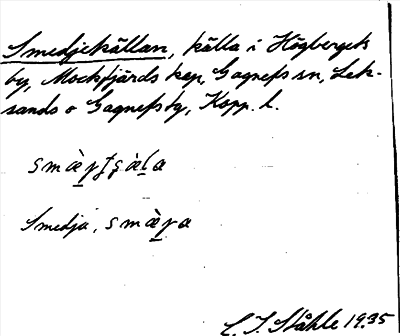 Smedjekällan, källa i Högbergets
by, Mockfjärds kap, Gagnefs sn, Lek-
sands o Gagnefs tg, Kopp. l.
Smedja,
C. I. Ståhle 1935